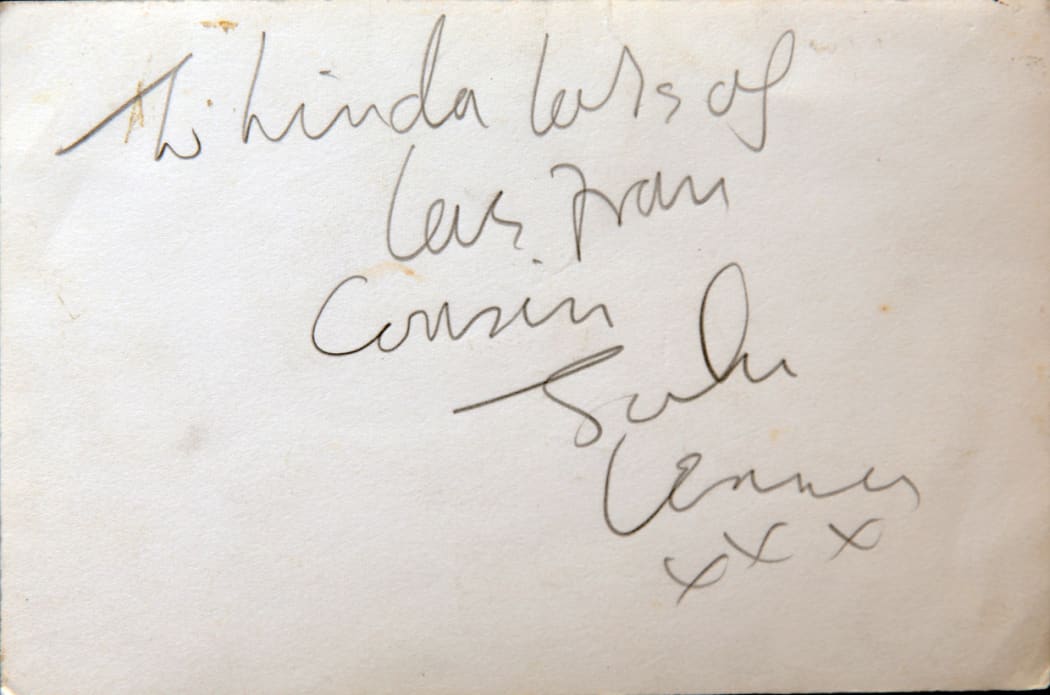 To Linda lots of
love from
Cousin
John
Lennon
xxx